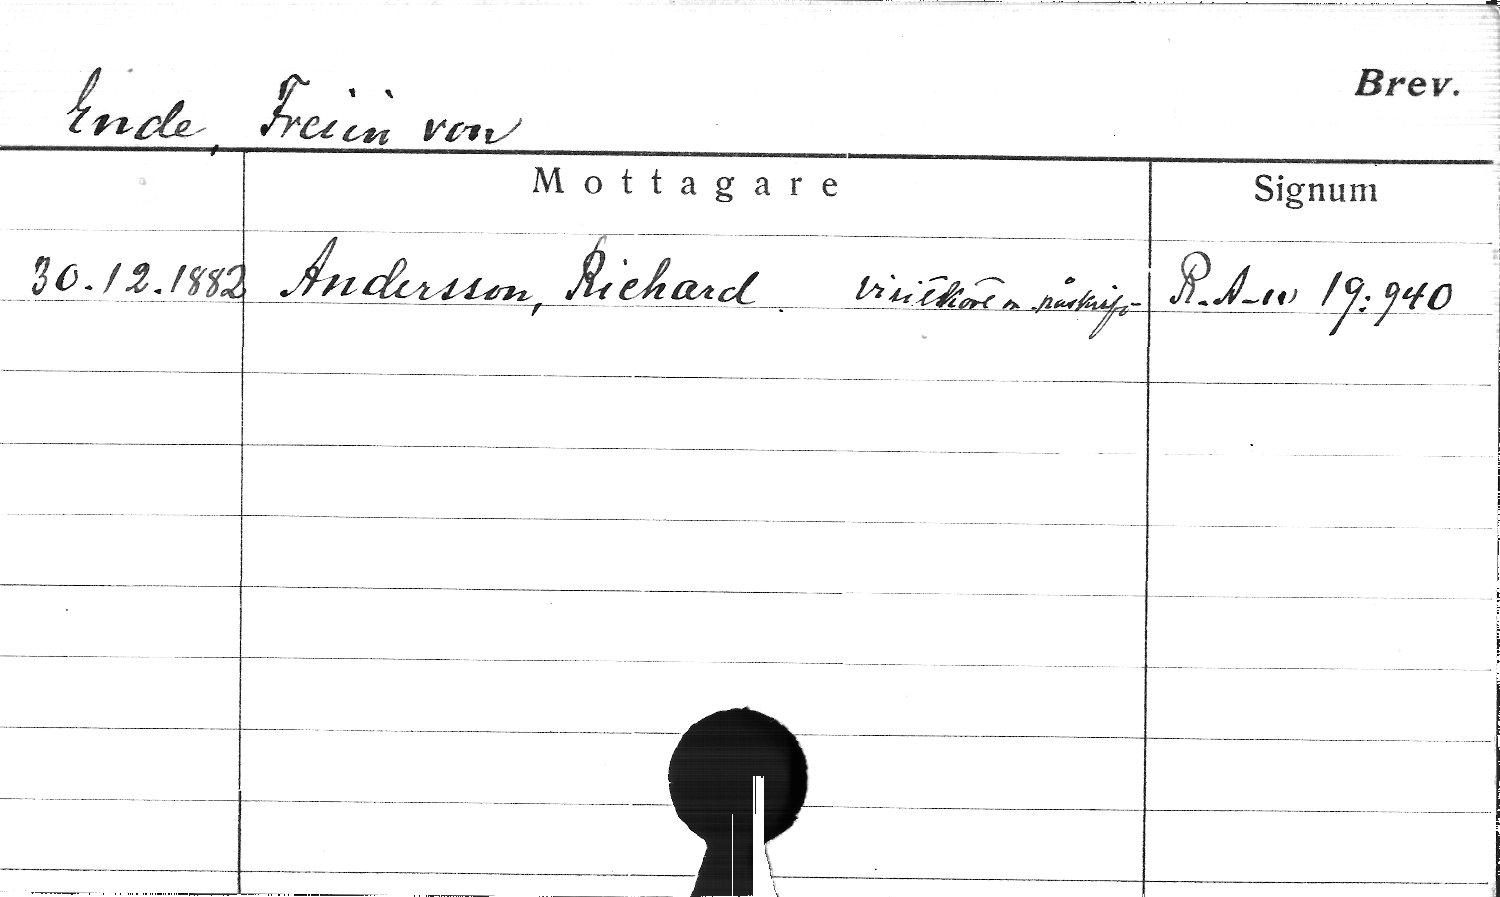 Brev.
Ende, Freiin von
Mottagare Signum
30.12.1882 Andersson, Richard visitkort m påskrift 19:940